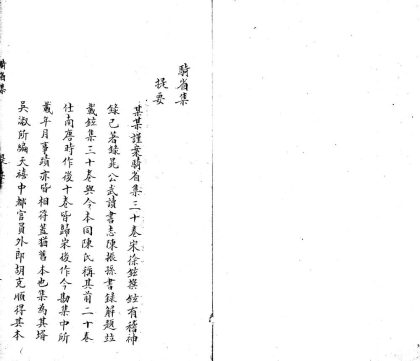 騎省集
提要
某某謹案騎省集三十卷宋徐鉉撰鉉有稽神
錄已著錄晁公武讀書志陳振孫書錄解題竝
載鉉集三十卷與今本同陳氏稱其前二十卷
仕南唐時作後十卷皆歸宋後作今勘集中所
載年月事蹟亦皆相符蓋猶舊本也集為其壻
吳淑所編天禧中都官員外郎胡克順得其本
騎省集